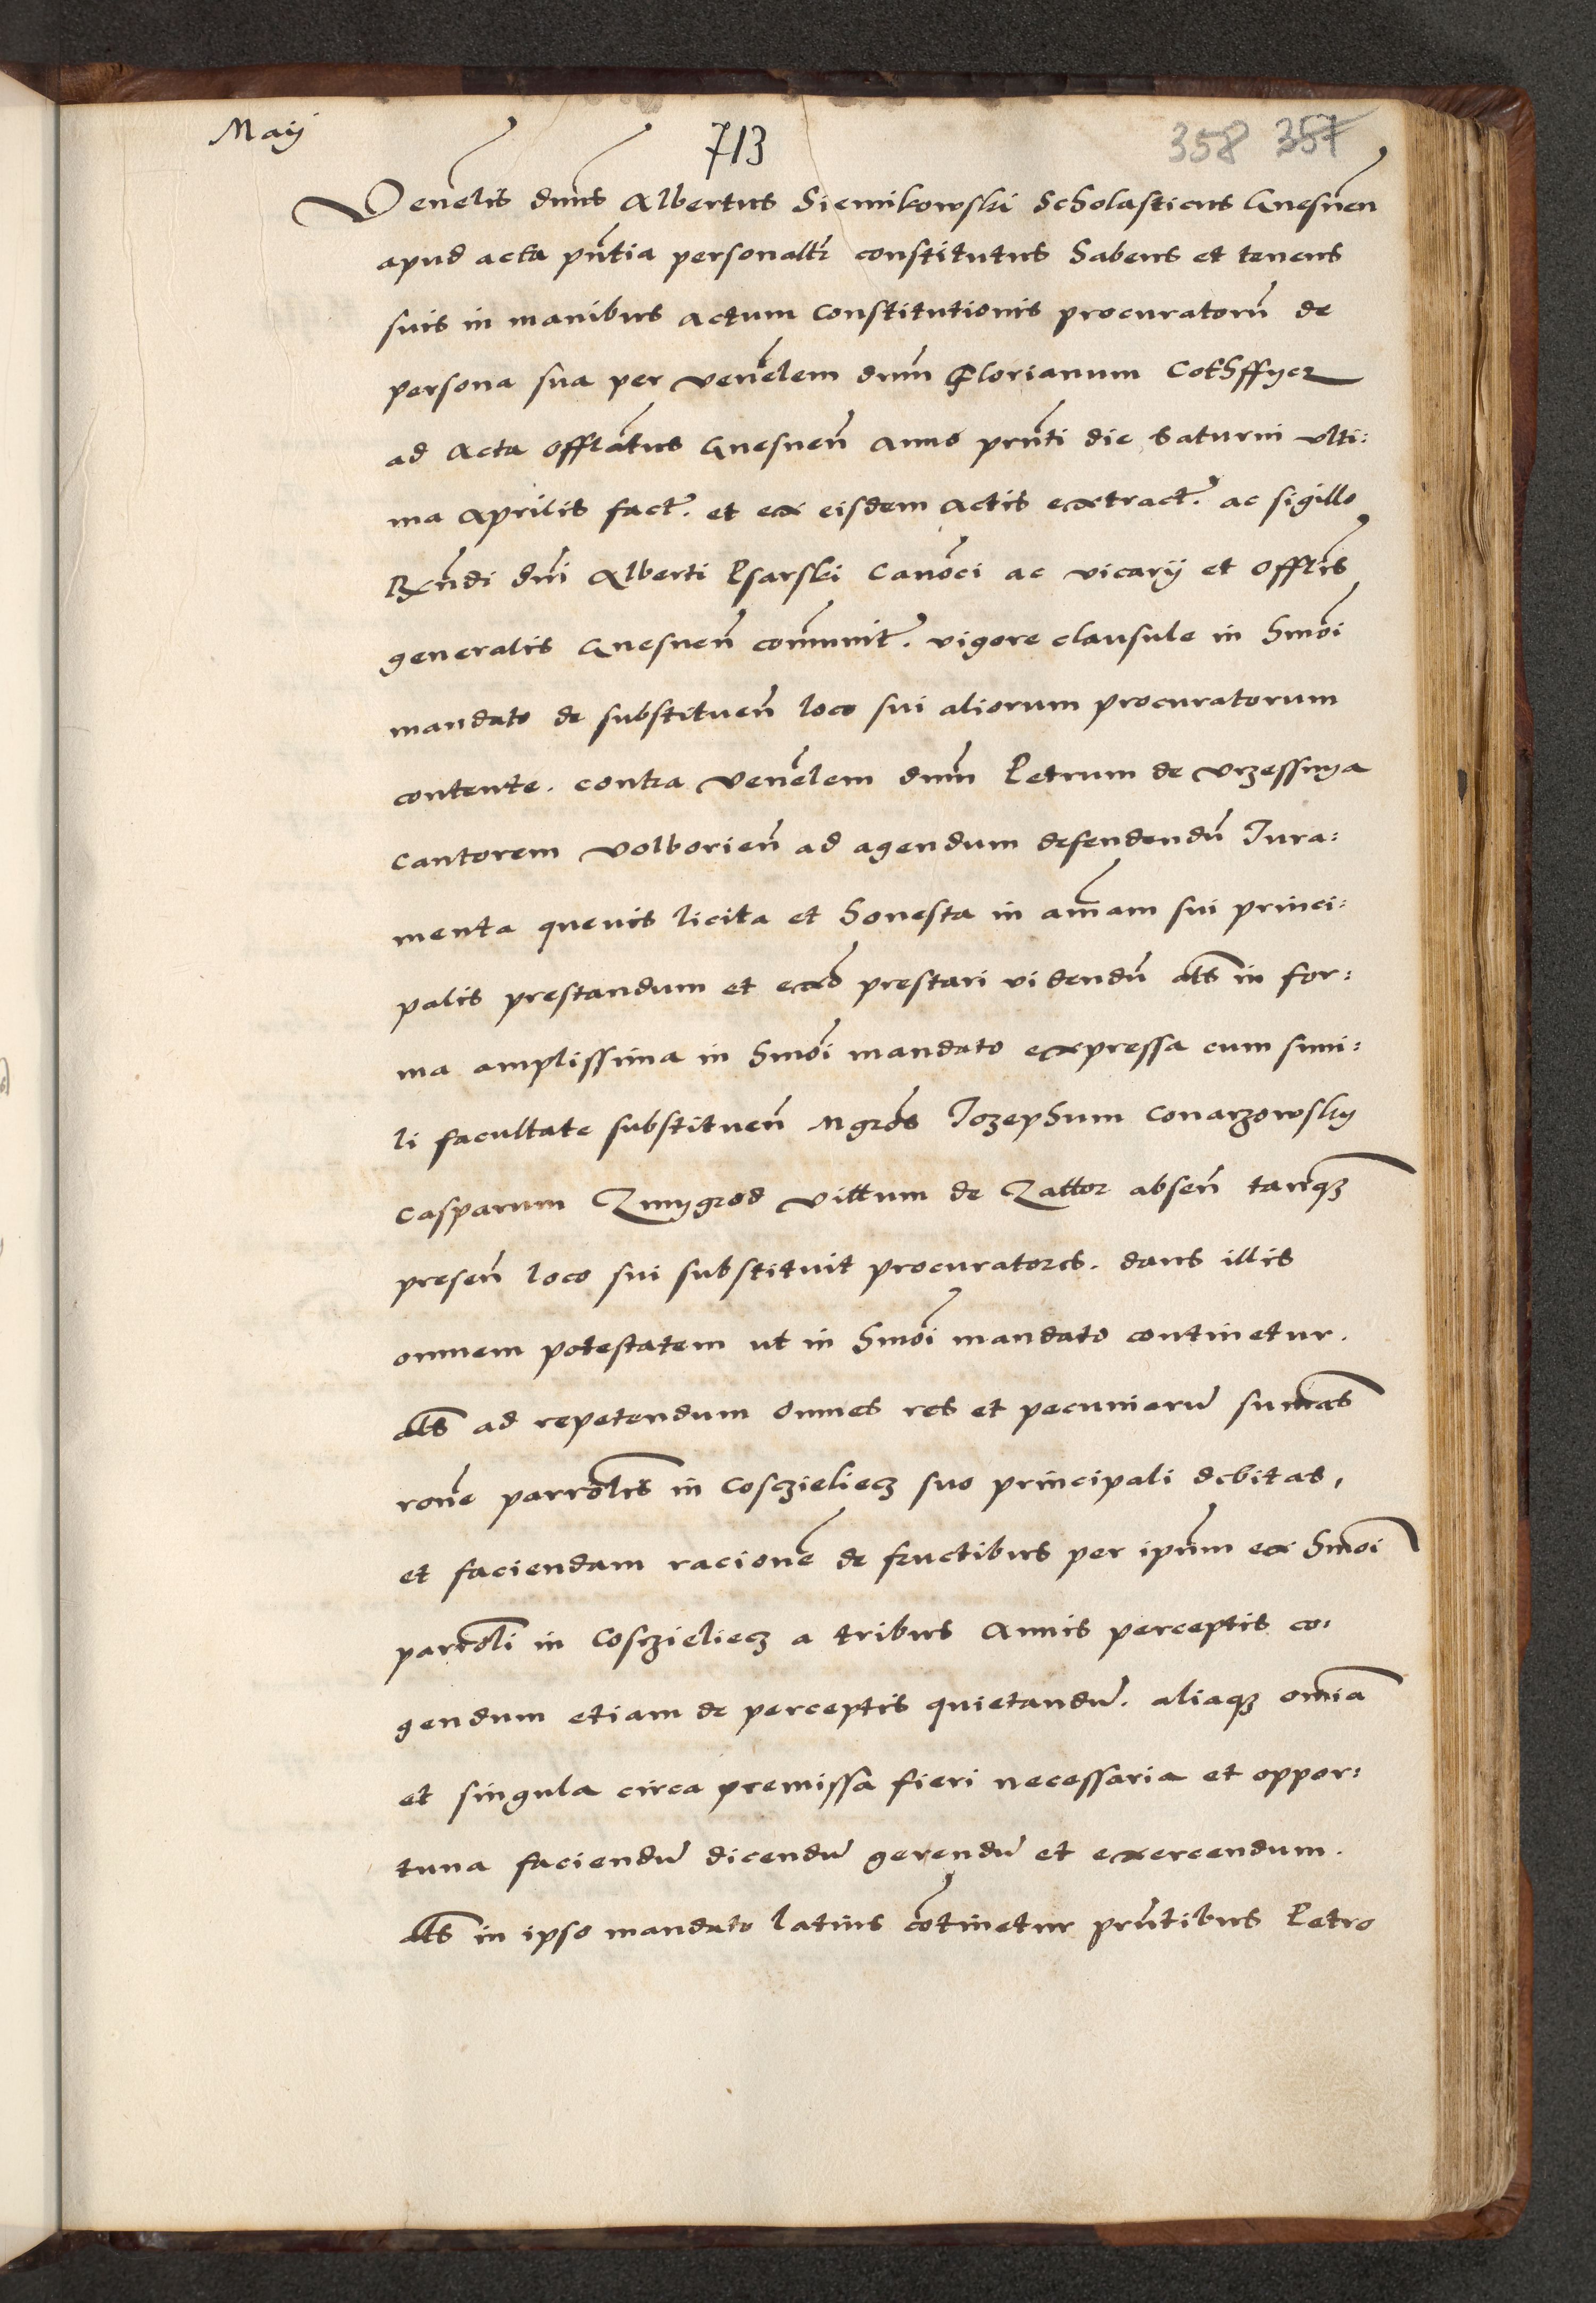 Maij
713
358 357
Venelis dnus Albertus Siemikowski Scholasticus Gnesnen
apud acta pntia personaltr constitutus habens et tenens
suis in manibus actum constitutionis procuratorum de
persona sua per venelem dnum Florianum Cothffycz
ad Acta Offlatus Gnesnen Anno prnti die Saturni vlti:
ma Aprilis fact. et ex eisdem actis extract. ac sigillo
Rndi dni Alberti Psarski Canoci ac vicarij et Offlis
generalis Gnesnen communit. vigore clausule in hmoi
mandato de substituen loco sui aliorum procuratorum
contente. contra venelem dnum Petrum de Vrzessnya
Cantorem Volborien ad agendum defendendu Iura:
menta quevis licita et honesta in animam sui princi:
palis prestandum et exdo prestari videndu als in for:
ma amplissima in hmoi mandato expressa cum simi:
li facultate substituen Mgros Iozephum Conarzowsky
Casparum Zmygrod Vittum de Zattor absen tanq3
presen loco sui substituit procuratores. dans illis
omnem potestatem ut in hmoi mandato continetur.
als ad repetendum omnes res et pecuniaru sumas
rone parrolis in Cosczieliecz suo principali debitas,
et faciendam racione de fructibus per ipsum ex hmoi
parroli in Cosczieliecz a tribus Annis perceptis co:
gendum etiam de perceptis quietandu. aliaq3 omia
et singula circa premissa fieri necessaria et oppor:
tuna faciendu dicendu gerendu et exercendum.
als in ipso mandato latius cotinetur prntibus Petro